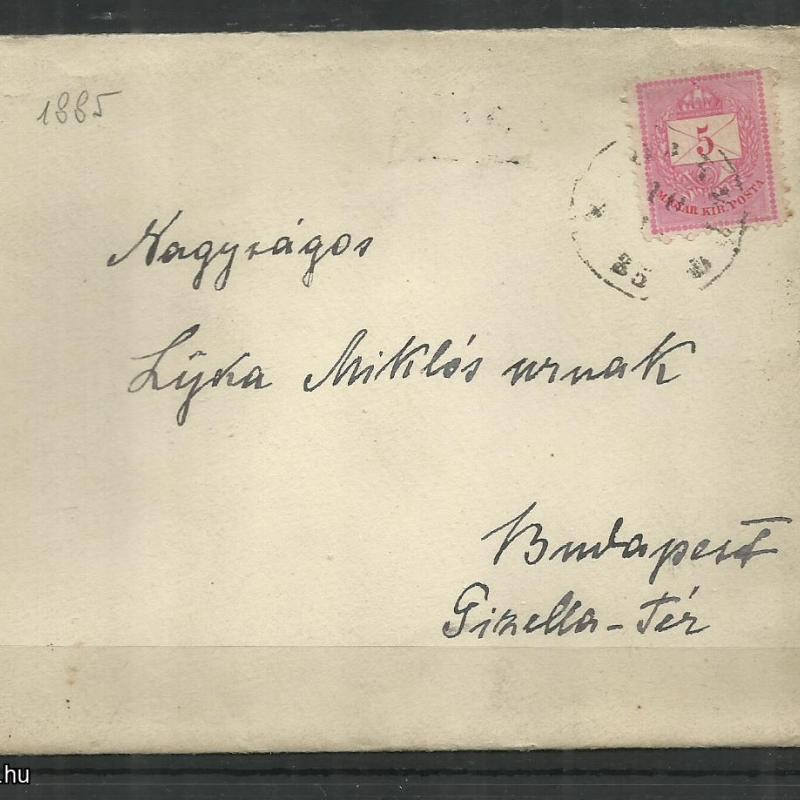 1885
5
MAGYAR KIR. POSTA
85
Nagyságos
Lyka Miklós urnak
Budapest
Gizella-Tér
.hu